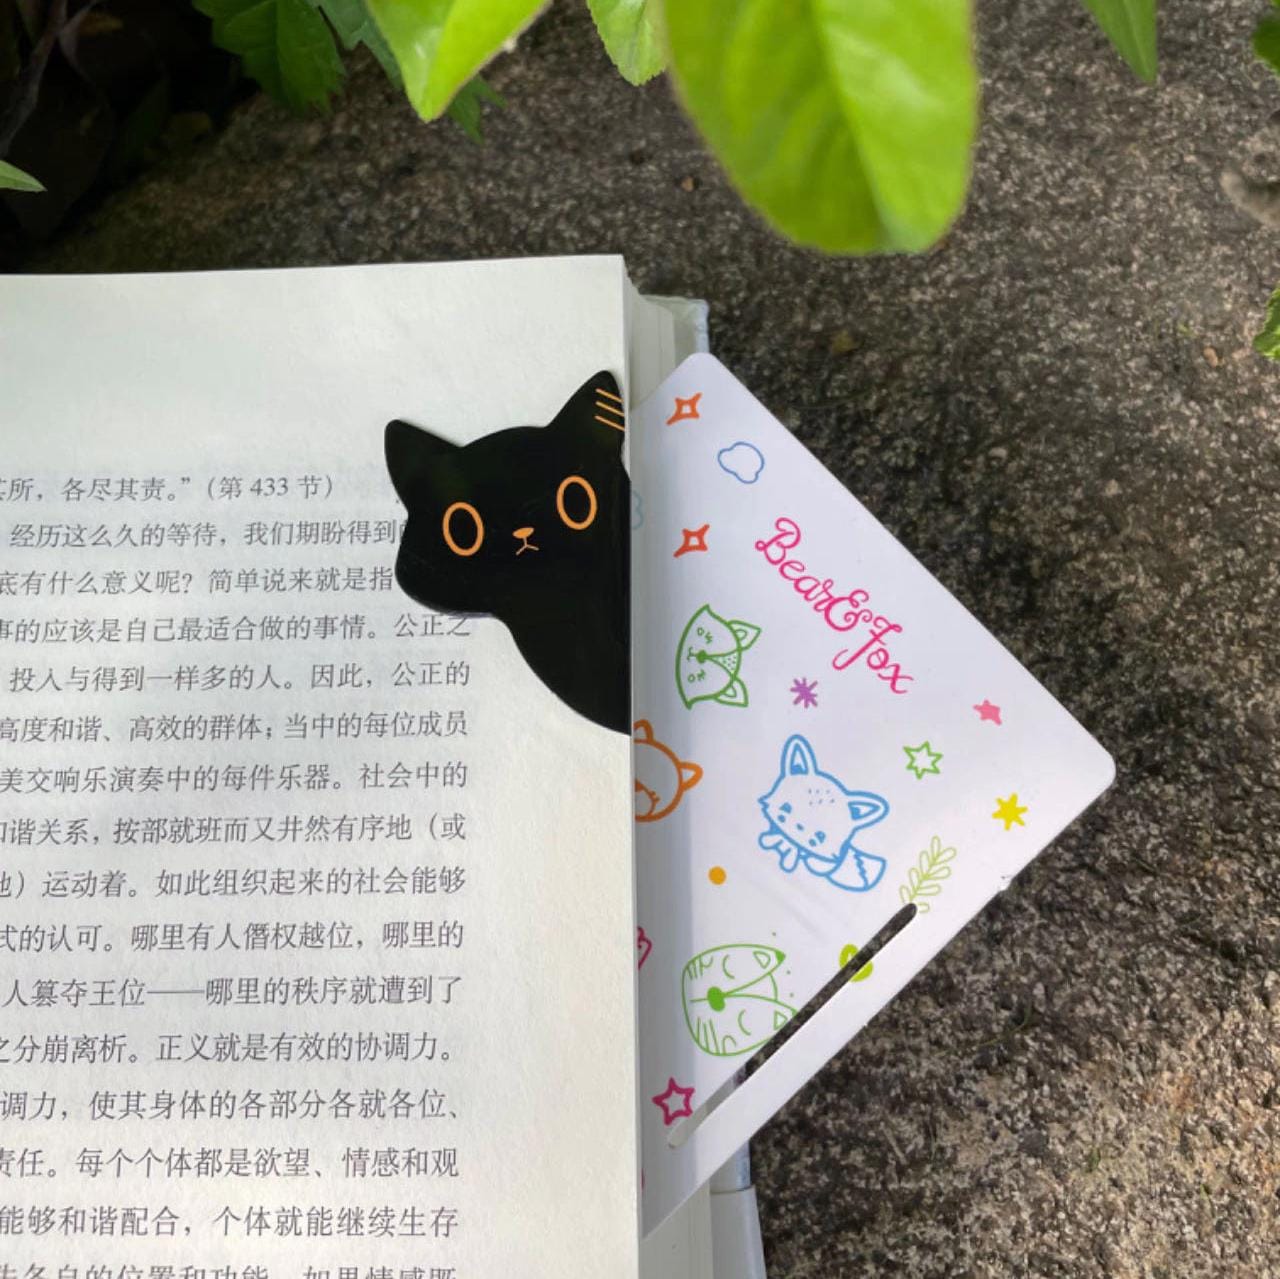 所，各尽其责。”（第 433 节）
经历这么久的等待，我们期盼得到
底有什么意义呢？简单说来就是指
事的应该是自己最适合做的事情。公正之
投入与得到一样多的人。因此，公正的
高度和谐、高效的群体；当中的每位成员
美交响乐演奏中的每件乐器。社会中的
和谐关系，按部就班而又井然有序地（或
地）运动着。如此组织起来的社会能够
式的认可。哪里有人僭权越位，哪里的
人篡夺王位——哪里的秩序就遭到了
之分崩离析。正义就是有效的协调力。
调力，使其身体的各部分各就各位、
责任。每个个体都是欲望、情感和观
能够和谐配合，个体就能继续生存
各自的位置和功能，如果情感既
Bear&Fox